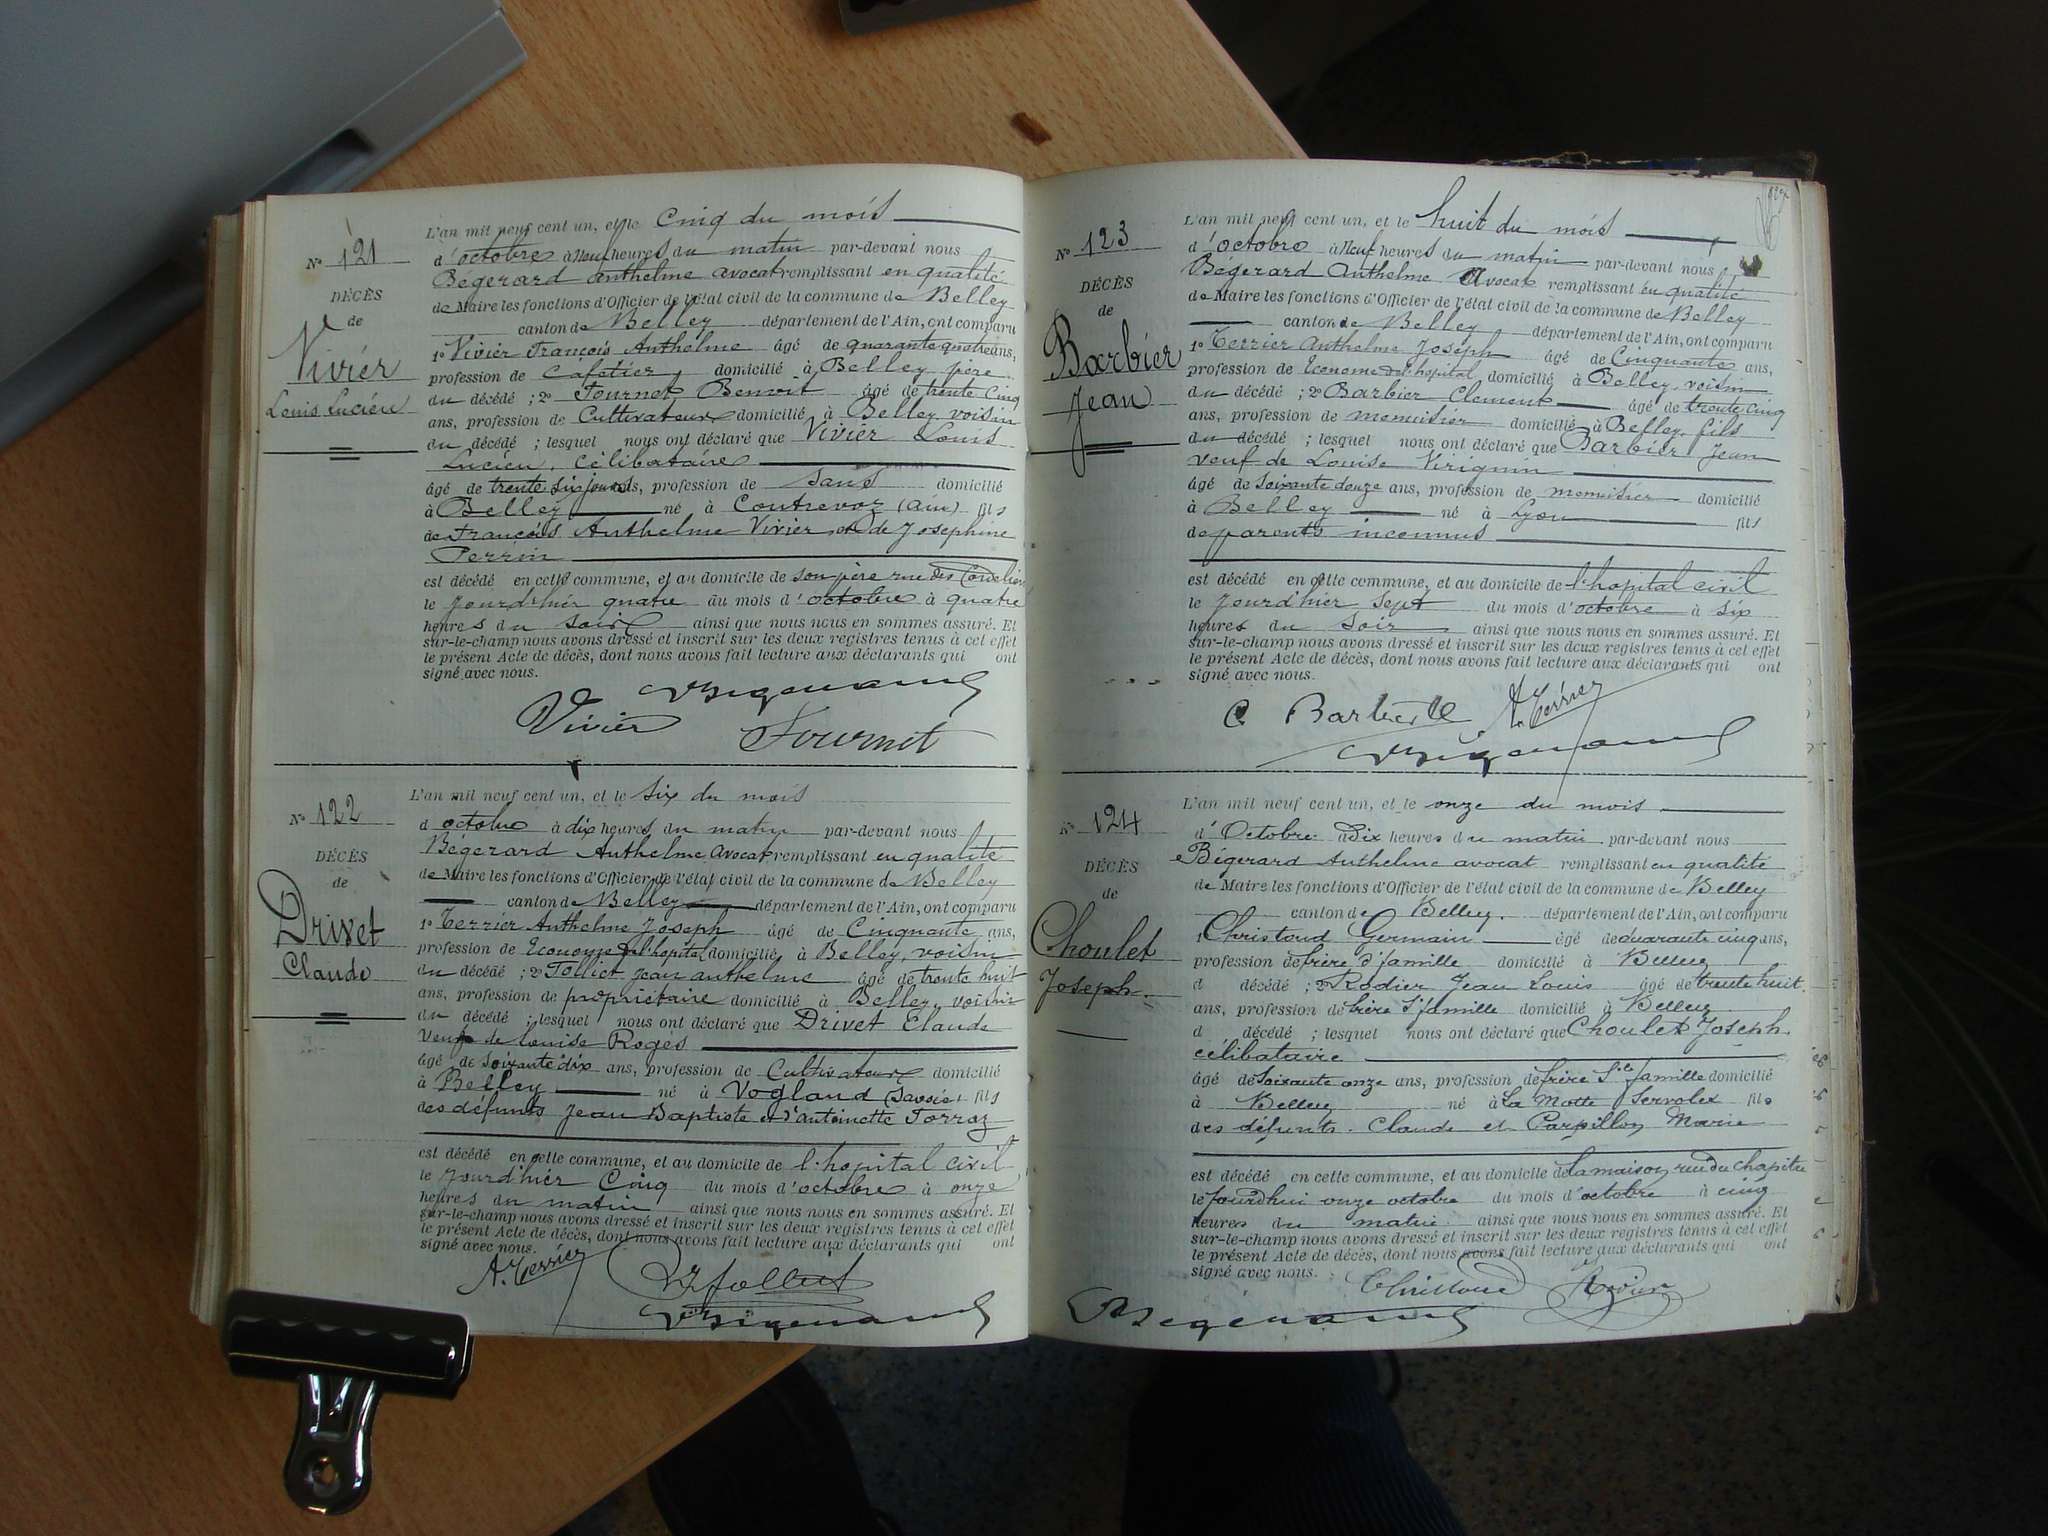 N° 121
DÉCÈS
de
Vivier
Louis Lucien
L'an mil neuf cent un, et le cinq du mois
d'octobre à neuf heures du matin par-devant nous
Bégerard Anthelme avocat remplissant en qualité
de Maire les fonctions d'Officier de l'état civil de la commune de Belley
canton de Belley département de l'Ain, ont comparu
1° Vivier François Anthelme âgé de quarante quatre ans,
profession de cafetier, domicilié à Belley père
du décédé ; 2° Fournet Benoit âgé de trente cinq
ans, profession de Cultivateur domicilié à Belley voisin
du décédé ; lesquel nous ont déclaré que Vivier Louis
Lucien, célibataire
âgé de trente six jours, profession de sans domicilié
à Belley né à Contrevoz (Ain) fils
de François Anthelme Vivier et de Josephine
Perrin
est décédé en cette commune, et au domicile de son père rue des Cordeliers
le jour d'hier quatre du mois d'octobre à quatre
heures du soir ainsi que nous nous en sommes assuré. Et
sur-le-champ nous avons dressé et inscrit sur les deux registres tenus à cet effet
le présent Acte de décès, dont nous avons fait lecture aux déclarants qui ont
signé avec nous.
Vivier Fournet
N° 122
DÉCÈS
de
Drivet
Claude
L'an mil neuf cent un, et le six du mois
d octobre à dix heures du matin par-devant nous
Bégerard Anthelme avocat remplissant en qualité
de Maire les fonctions d'Officier de l'état civil de la commune de Belley
canton de Belley département de l'Ain, ont comparu
1° Terrier Anthelme Joseph âgé de Cinquante ans,
profession de Econome de l'hopital domicilié à Belley, voisin
du décédé ; 2° Folliet Jean anthelme âgé de trente huit
ans, profession de propriétaire domicilié à Belley, voisin
du décédé ; lesquel nous ont déclaré que Drivet Claude
veuf de Louise Roges
âgé de soixante dix ans, profession de Cultivateur domicilié
à Belley né à Vogland (Savoie) fils
des défunts Jean Baptiste et d'antoinette Torraz
est décédé en cette commune, et au domicile de l'hopital civil
le jour d'hier Cinq du mois d'octobre à onze
heures du matin ainsi que nous nous en sommes assuré. Et
sur-le-champ nous avons dressé et inscrit sur les deux registres tenus à cet effet
le présent Acte de décès, dont nous avons fait lecture aux déclarants qui ont
signé avec nous.
A. Terrier
N° 123
DÉCÈS
de
Barbier
Jean
L'an mil neuf cent un, et le huit du mois
d'octobre à neuf heures du matin par-devant nous
Bégerard Anthelme Avocat remplissant en qualité
de Maire les fonctions d'Officier de l'état civil de la commune de Belley
canton de Belley département de l'Ain, ont comparu
1° Terrier Anthelme Joseph âgé de Cinquante ans,
profession de Econome de l'hopital domicilié à Belley, voisin
du décédé ; 2° Barbier Clement âgé de trente cinq
ans, profession de menuisier domicilié à Belley, fils
du décédé ; lesquel nous ont déclaré que Barbier Jean
veuf de Louise Virignin
âgé de soixante douze ans, profession de menuisier domicilié
à Belley né à Lyon fils
de parents inconnus
est décédé en cette commune, et au domicile de l'hopital civil
le jour d'hier sept du mois d'octobre à six
heures du soir ainsi que nous nous en sommes assuré. Et
sur-le-champ nous avons dressé et inscrit sur les deux registres tenus à cet effet
le présent Acte de décès, dont nous avons fait lecture aux déclarants qui ont
signé avec nous.
C Barbier A. Terrier
N° 124
DÉCÈS
de
Choulet
Joseph
L'an mil neuf cent un, et le onze du mois
d'Octobre à Dix heures du matin par-devant nous
Bégerard Anthelme avocat remplissant en qualité
de Maire les fonctions d'Officier de l'état civil de la commune de Belley
canton de Belley. département de l'Ain, ont comparu
1° Christoud Germain âgé de quarante cinq ans,
profession de frère Ste famille domicilié à Belley
d décédé ; 2° Rodier Jean Louis âgé de trente huit
ans, profession de frère Ste famille domicilié à Belley
d décédé ; lesquel nous ont déclaré que Choulet Joseph
célibataire
âgé de soixante onze ans, profession de frère Ste famille domicilié
à Belley né à La Motte Servolex fils
des défunts Claude et Carpillon Marie
est décédé en cette commune, et au domicile de la maison rue du chapitre
le jourd'hui onze octobre du mois d'octobre à cinq
heures du matin ainsi que nous nous en sommes assuré. Et
sur-le-champ nous avons dressé et inscrit sur les deux registres tenus à cet effet
le présent Acte de décès, dont nous avons fait lecture aux déclarants qui ont
signé avec nous.
Christoud